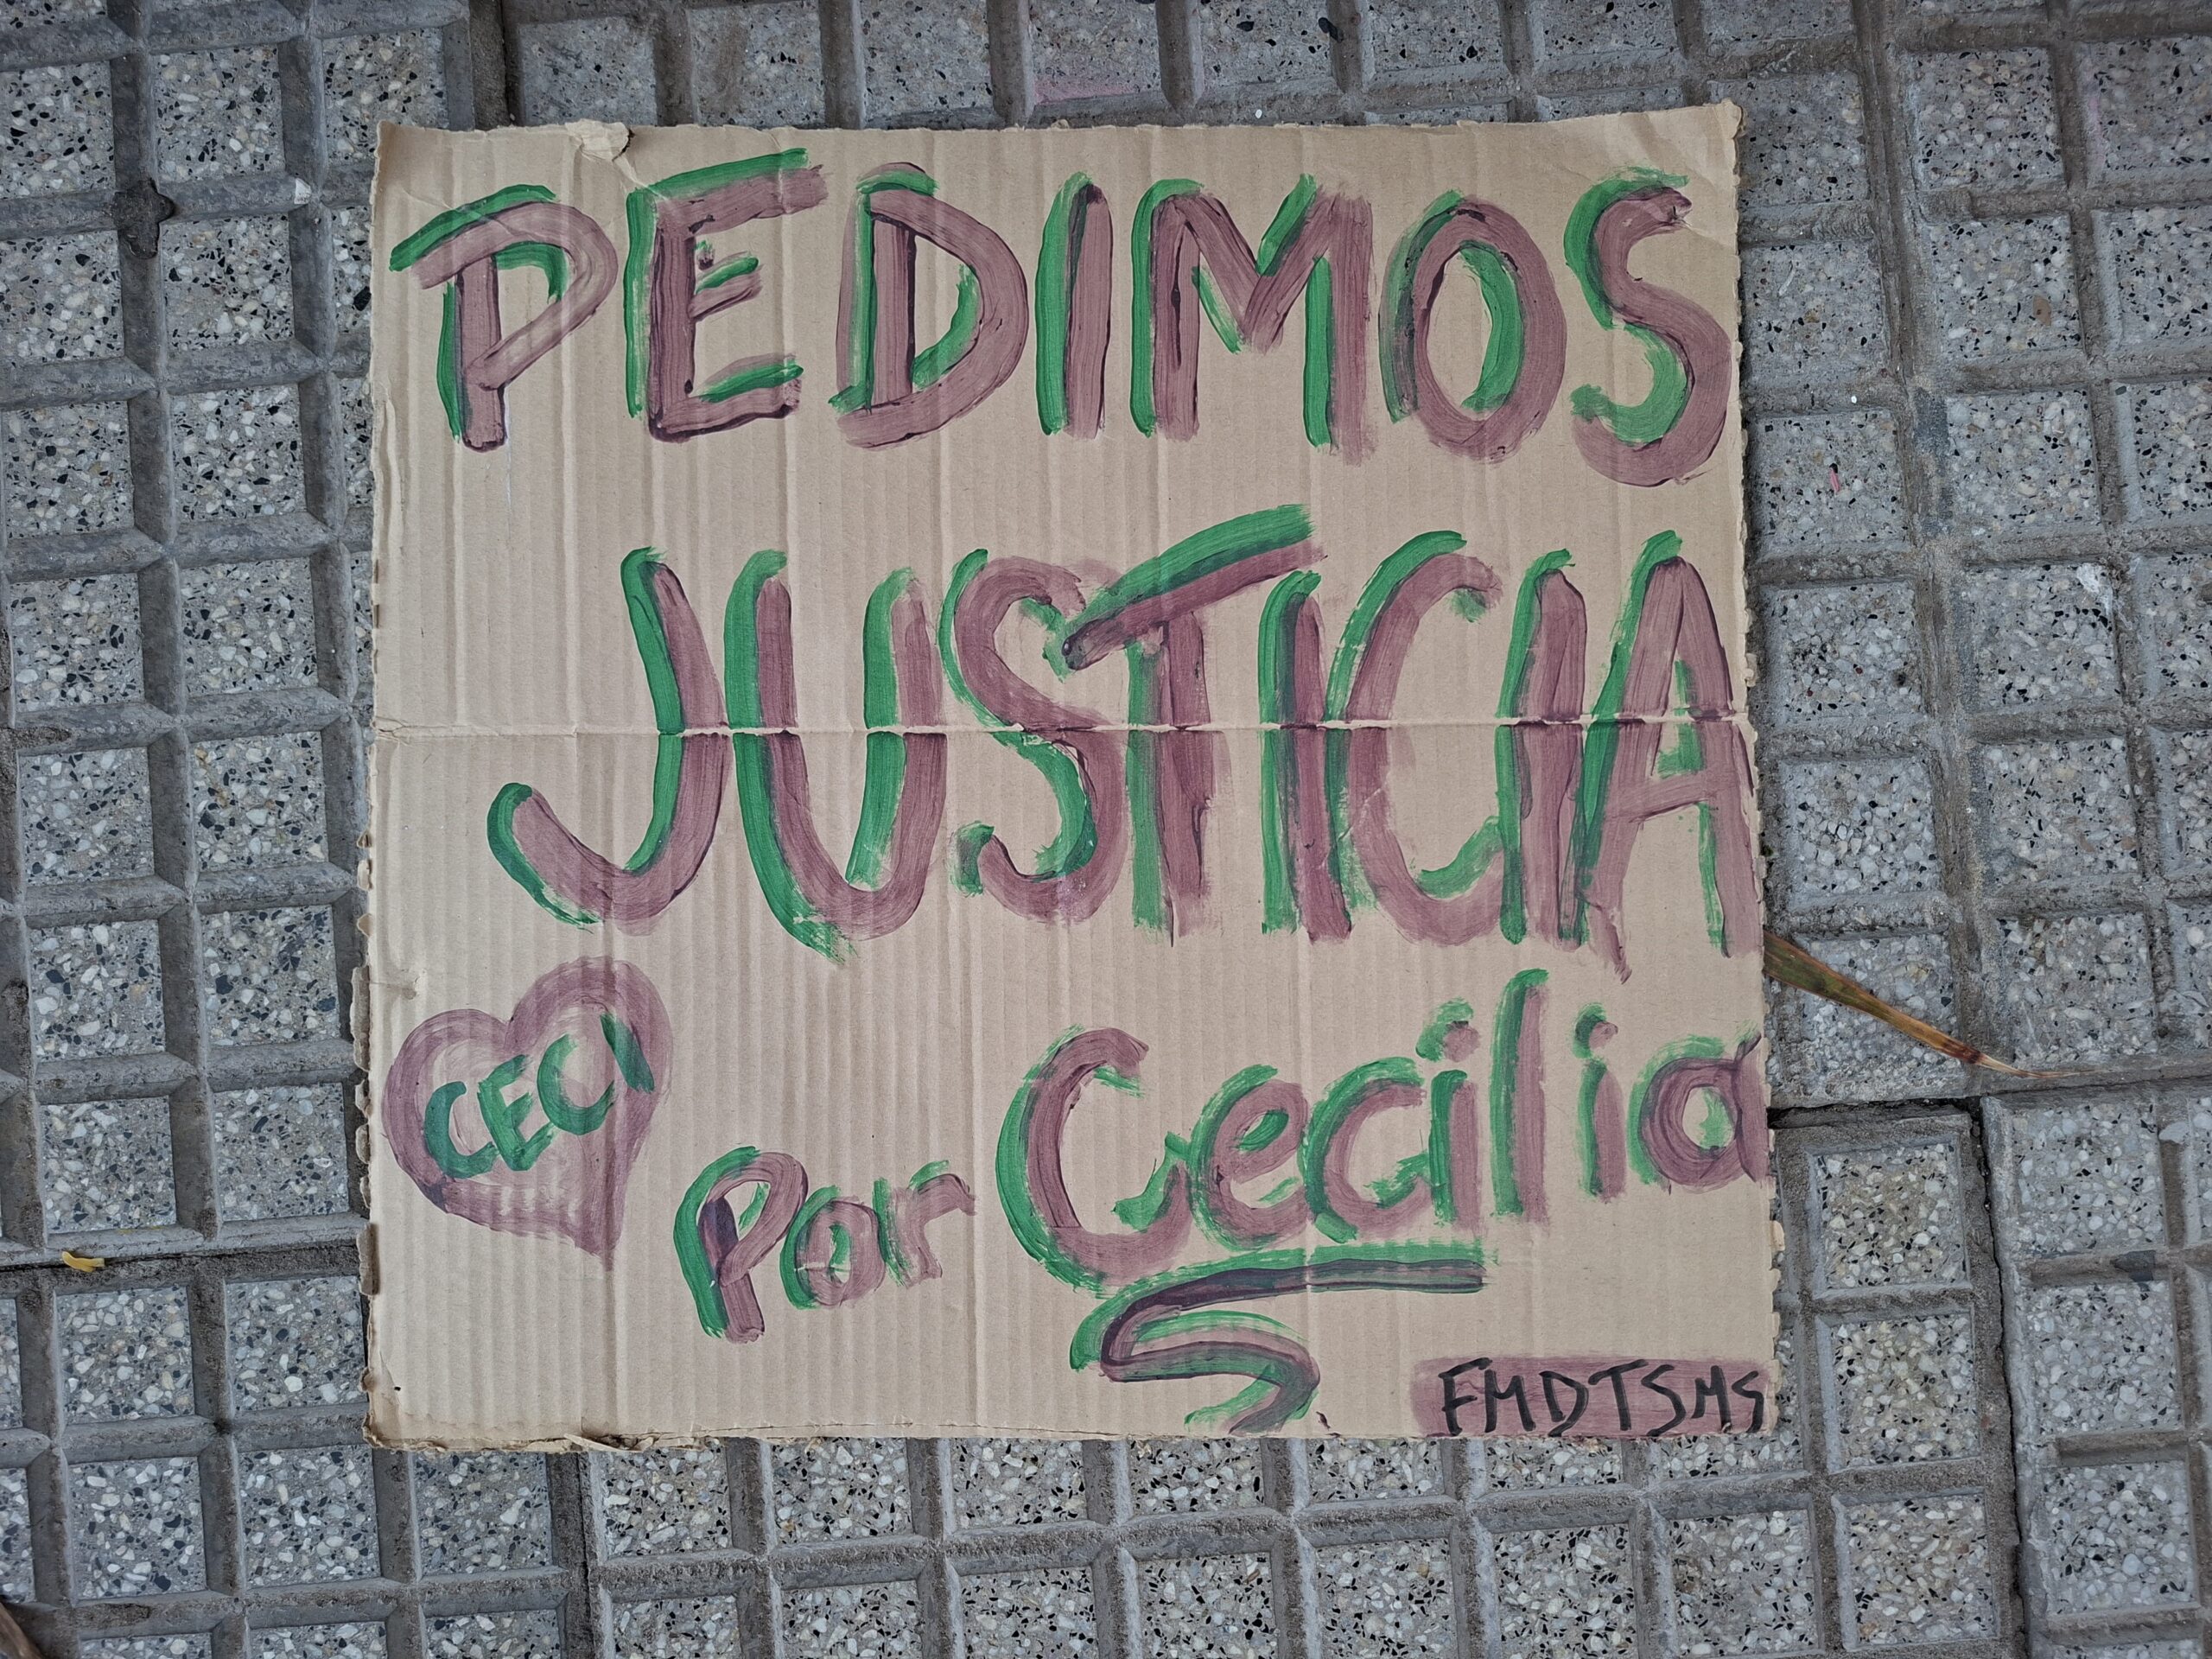 PEDIMOS
JUSTICIA
CECI
Por Cecilia
FMDTSMS